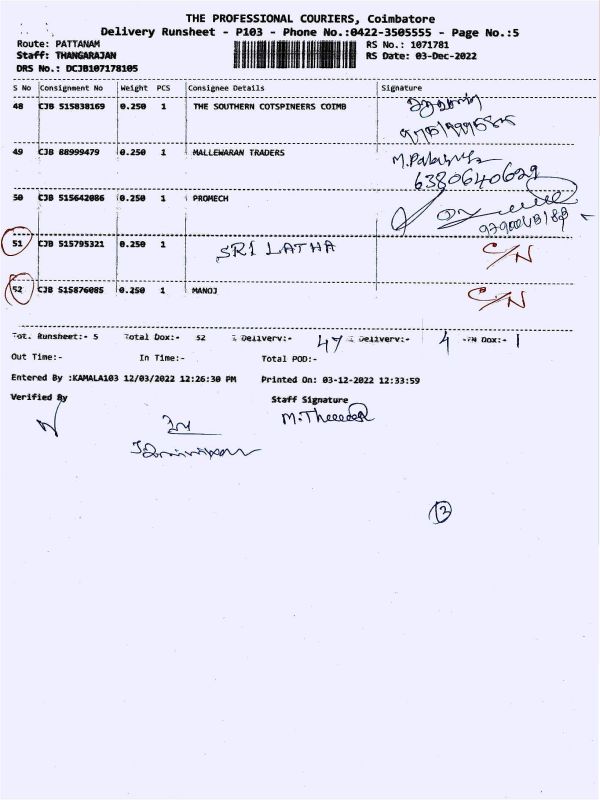 THE PROFESSIONAL COURIERS, Coimbatore
Delivery Runsheet - P103 - Phone No.:0422-3505555 - Page No.:5
Route: PATTANAM RS No.: 1071781
Staff: THANGARAJAN RS Date: 03-Dec-2022
DRS No.: DCJB107178105
S No Consignment No Weight PCS Consignee Details Signature
48 CJB 515838169 0.250 1 THE SOUTHERN COTSPINEERS COIMB
49 CJB 88999479 0.250 1 MALLEWARAN TRADERS
6380640629
50 CJB 515642086 0.250 1 PROMECH
51 CJB 515795321 0.250 1 SRI LATHA C/N
52 CJB 515876085 0.250 1 MANOJ C/N
Tot. Runsheet:- 5 Total Dox:- 52 % Delivery:- 47 % Delivery:- 4 Dox:- 1
Out Time:- In Time:- Total POD:-
Entered By :KAMALA103 12/03/2022 12:26:30 PM Printed On: 03-12-2022 12:33:59
Verified By Staff Signature